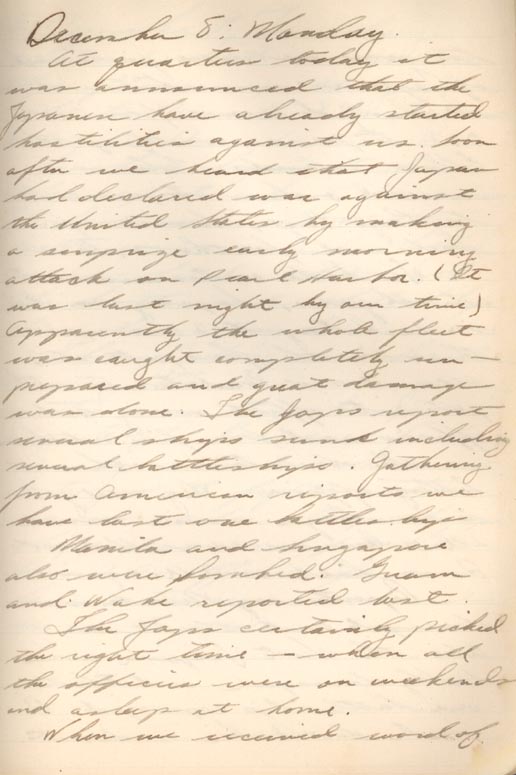 December 8: Monday.
At quarters today it
was announced that the
Japanese have already started
hostilities against us. Soon
after we heard that Japan
had declared war against
the United States by making
a surprize early morning
attack on Pearl Harbor. (It
was last night by our time)
Apparently the whole fleet
was caught completely un-
prepared and great damage
was done. The Japs report
several ships sunk including
several battleships. Gathering
from American reports we
have lost one battleship
Manila and Singapore
also were bombed. Guam
and Wake reported lost.
The Japs certainly picked
the right time - when all
the officers were on weekends
and asleep at home.
When we received word of